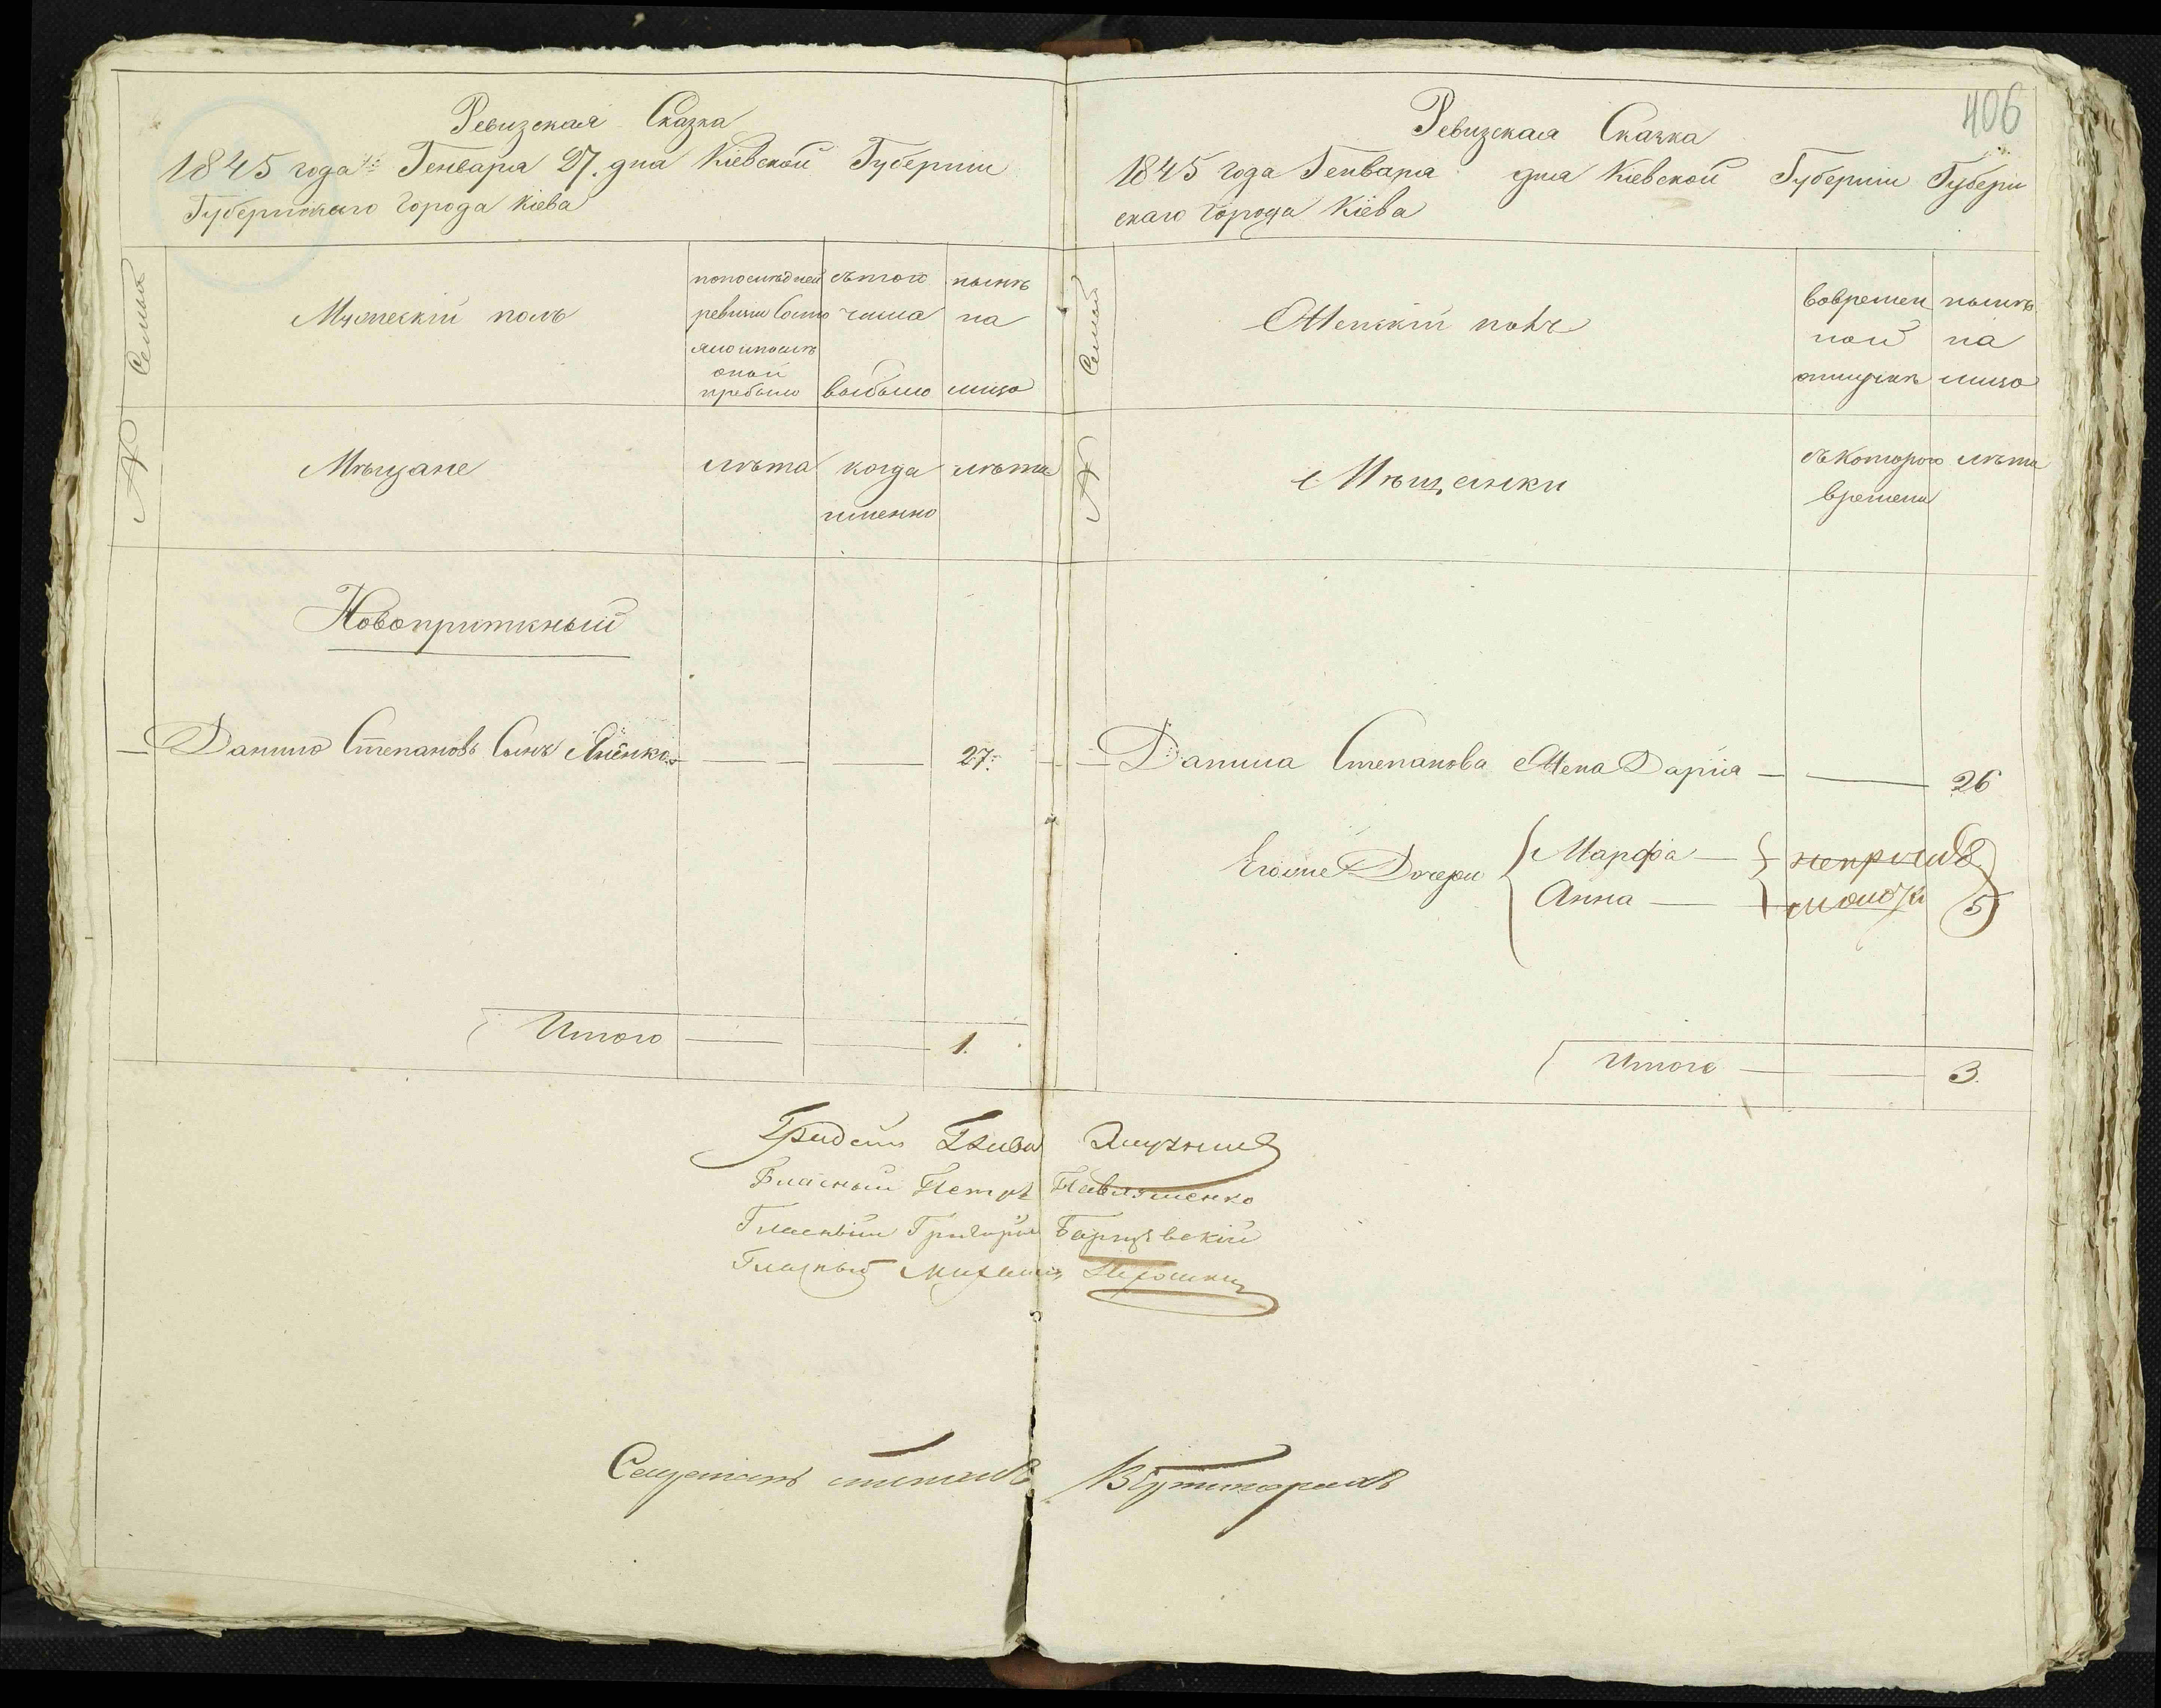 406
Ревизская Сказка
1845 года Генваря 27. дня Кіевской Губерніи
Губернскаго Города Кіева
№ Семьи
Мужескій полъ
попоследней ревизіи Состояло ипосле оной прибыло
изтого числа выбыло
ныне на лицо
Мѣщане
лѣта
когда именно
лѣта
Новоприписный
Данило Степановъ Сынъ — — 27.
Итого — — 1.
Ревизская Сказка
1845 года Генваря дня Кіевской Губерніи Губерн
скаго Города Кіева
№ Семьи
Женскій полъ
вовременной отлучке
ныне на лицо
Мѣщанки
съкотораго времени
лѣта
Данила Степанова Жена Дарія — — 26
Егоже Дочери
Марфа — 8
Анна — 5
Итого — 3.
Гласный Петръ Павлюченко
Гласный Григорій
Гласный Михаилъ